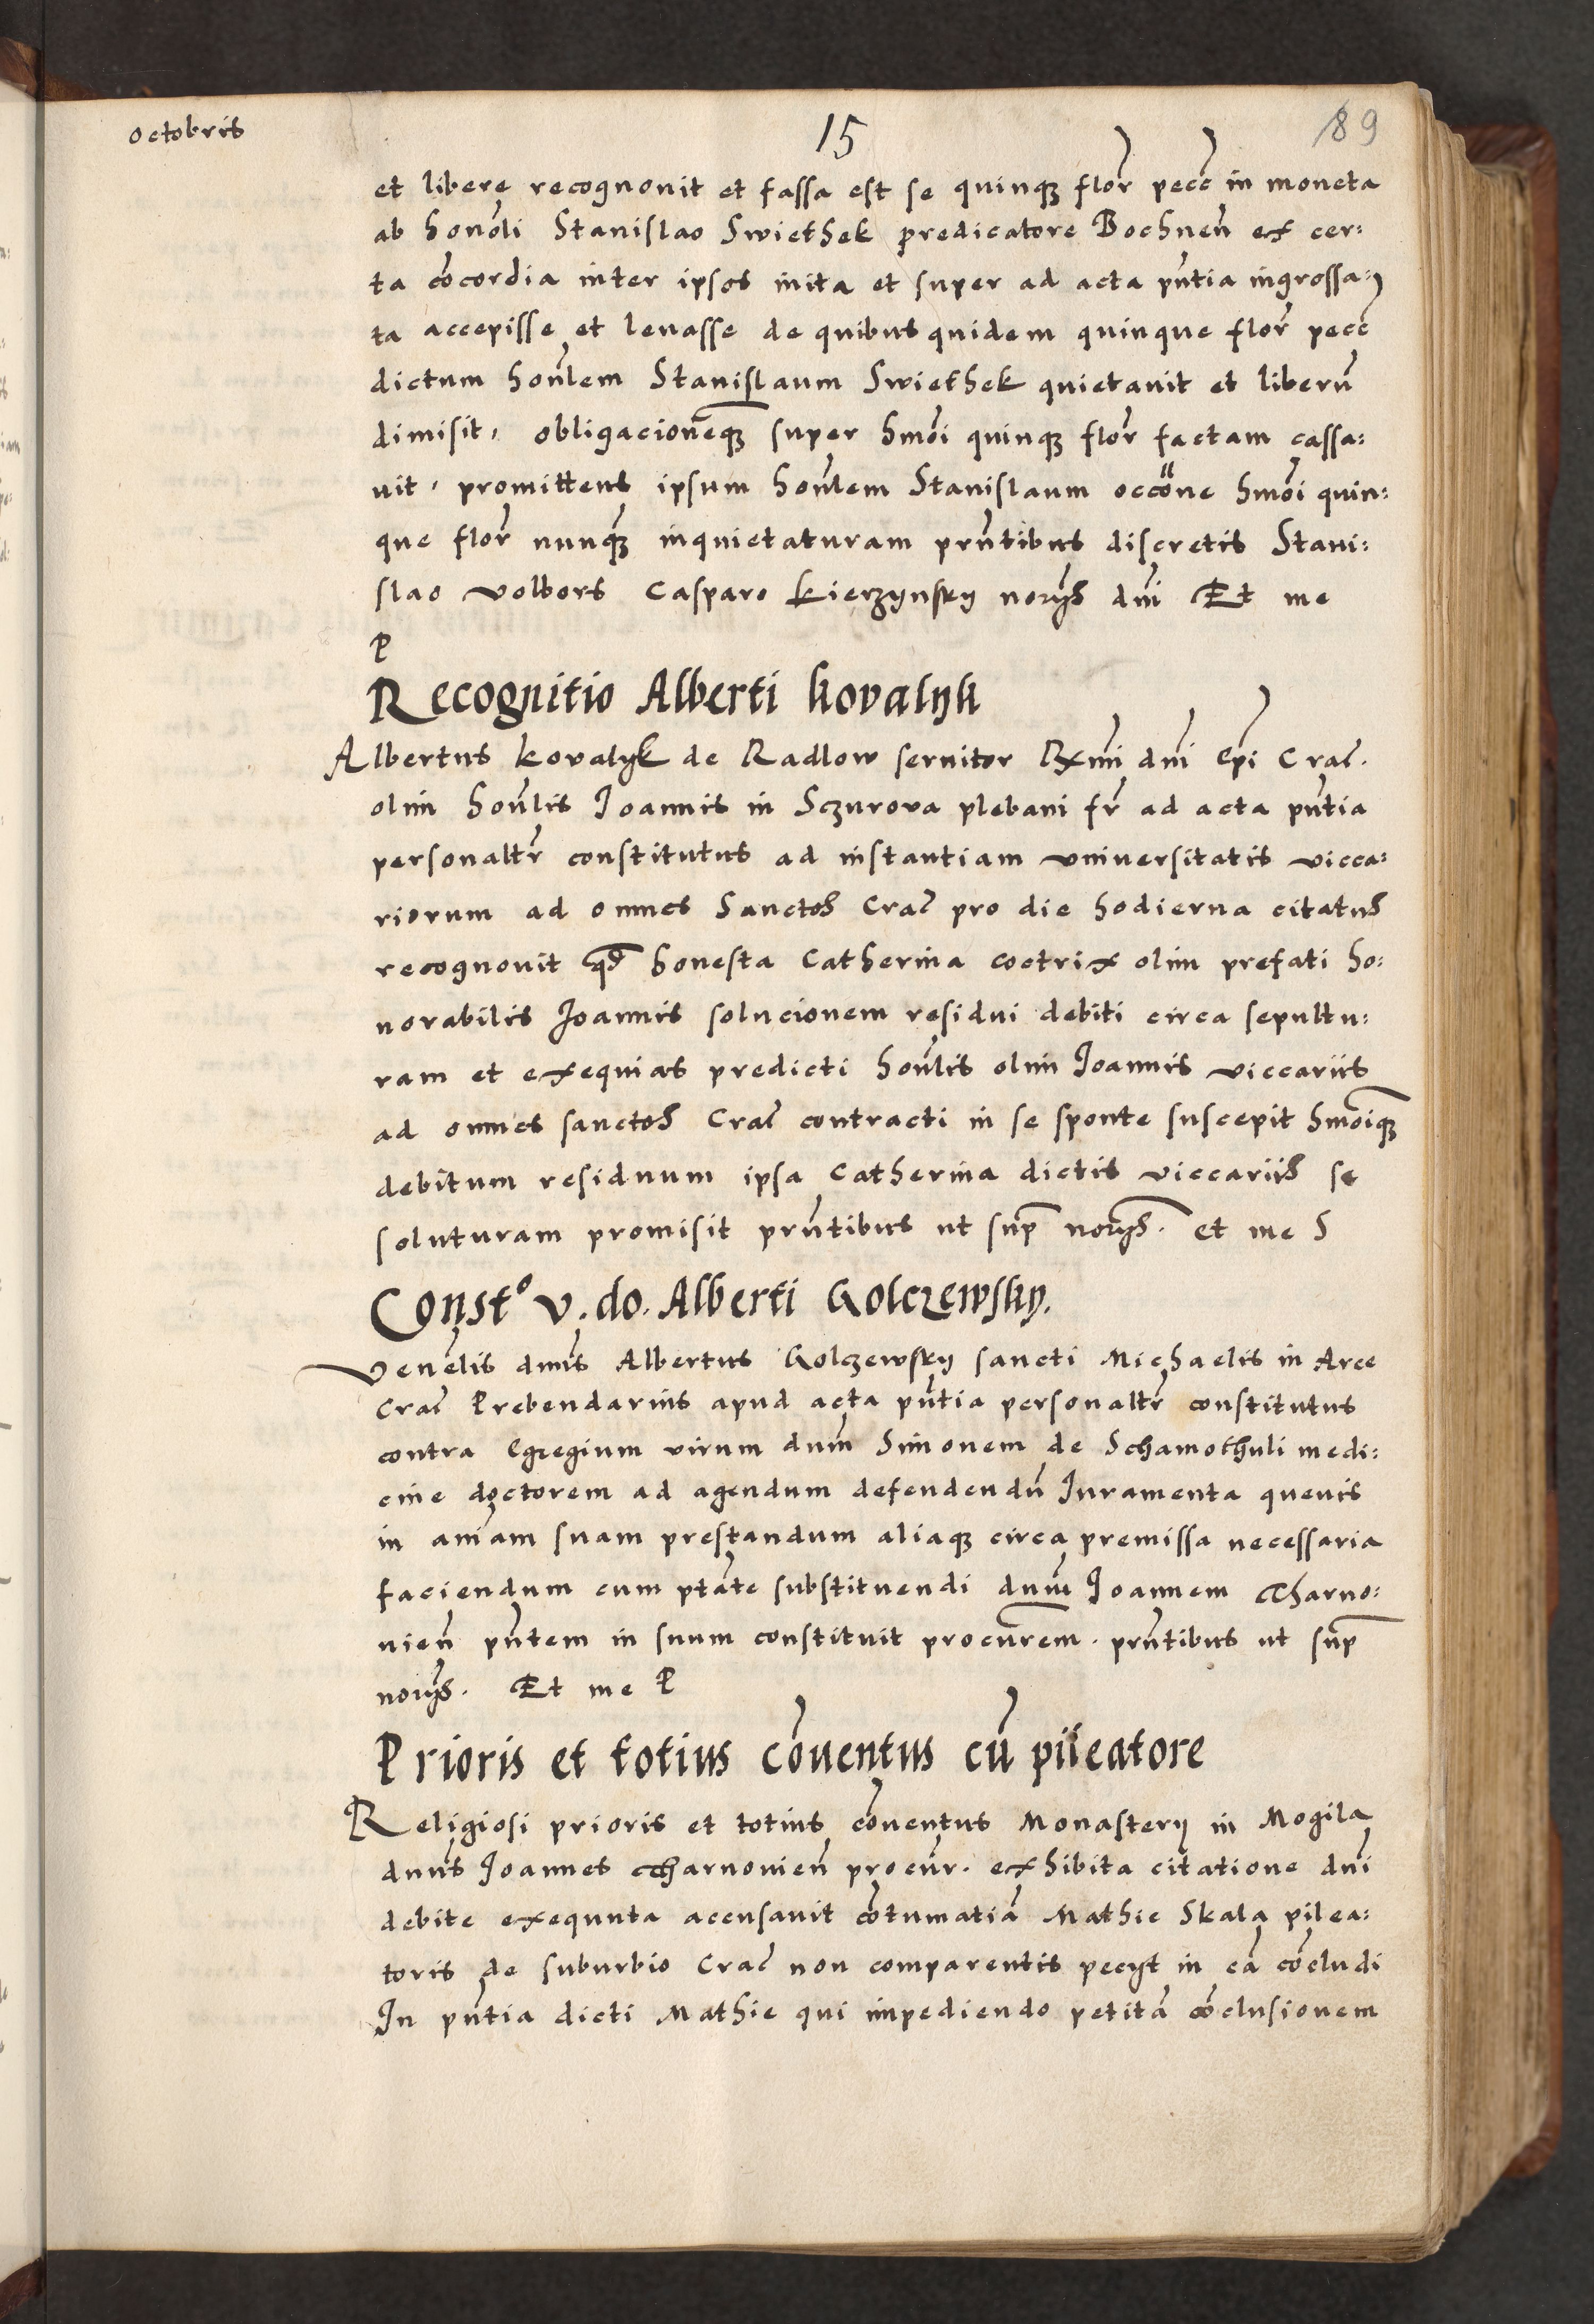 octobris
15
89
et libere recognouit et fassa est se quinqꝫ flor̄ pecc̄ in moneta
ab honōli Stanislao Swiethek predicatore Bochneñ ex cer:
ta cōcordia inter ipsos inita et super ad acta pñtia ingrossa:
ta accepisse et leuasse de quibus quidem quinque flor̄ pecc̄
dictum honlēm Stanislaum Swiethek quietauit et liberū
dimisit, obligacionemqꝫ super hmōi quinqꝫ flor̄ factam cassa:
uit, promittens ipsum honlēm Stanislaum occōne hmōi quin:
que flor̄ nunqꝫ inquietaturam prñtibus discretis Stani:
slao volbors Casparo Kierzynsky norijs dnī Et me
P
Recognitio Alberti Kovalyk
Albertus Kovalyk de Radlow seruitor Rxmī dnī Epī Crac̄.
olim honlīs Joannis in Sczurova plebani fr̄ ad acta pñtia
personaltr̄ constitutus ad instantiam vniuersitatis vicca:
riorum ad omnes Sanctos Crac̄ pro die hodierna citatus
recognouit qd̄ honesta Catherina coctrix olim prefati ho:
norabilis Joannis solucionem residui debiti circa sepultu:
ram et exequias predicti honlīs olim Joannis viccariis
ad omnes sanctos Crac̄ contracti in se sponte suscepit hmōiqꝫ
debitum residuum ipsa Catherina dictis viccariis se
soluturam promisit prñtibus ut sup̄ norijs. et me S
Constº v. do. Alberti Golczewsky.
Venēlis dnūs Albertus Golczewsky sancti Michaelis in Arce
Crac̄ Prebendarius apud acta pñtia personaltr̄ constitutus
contra Egregium virum dnūm Simonem de Schamothuli medi:
cine doctorem ad agendum defendendū Juramenta queuis
in aniam suam prestandum aliaqꝫ circa premissa necessaria
faciendum cum ptāte substituendi dnūm Joannem Charno:
uieñ pñtem in suum constituit procurēm. prñtibus ut sup̄
norijs. Et me P
Prioris et totius cōuentus cū pileatore
Religiosi prioris et totius cōuentus Monasterij in Mogila
dnūs Joannes Charnouieñ procur̄. exhibita citatione dnī
debite exequuta accusauit cōtumatiā Mathie Skala pilea:
toris de suburbio Crac̄ non comparentis pecyt in eā cōcludi
In pñtia dicti Mathie qui impediendo petitā cōclusionem